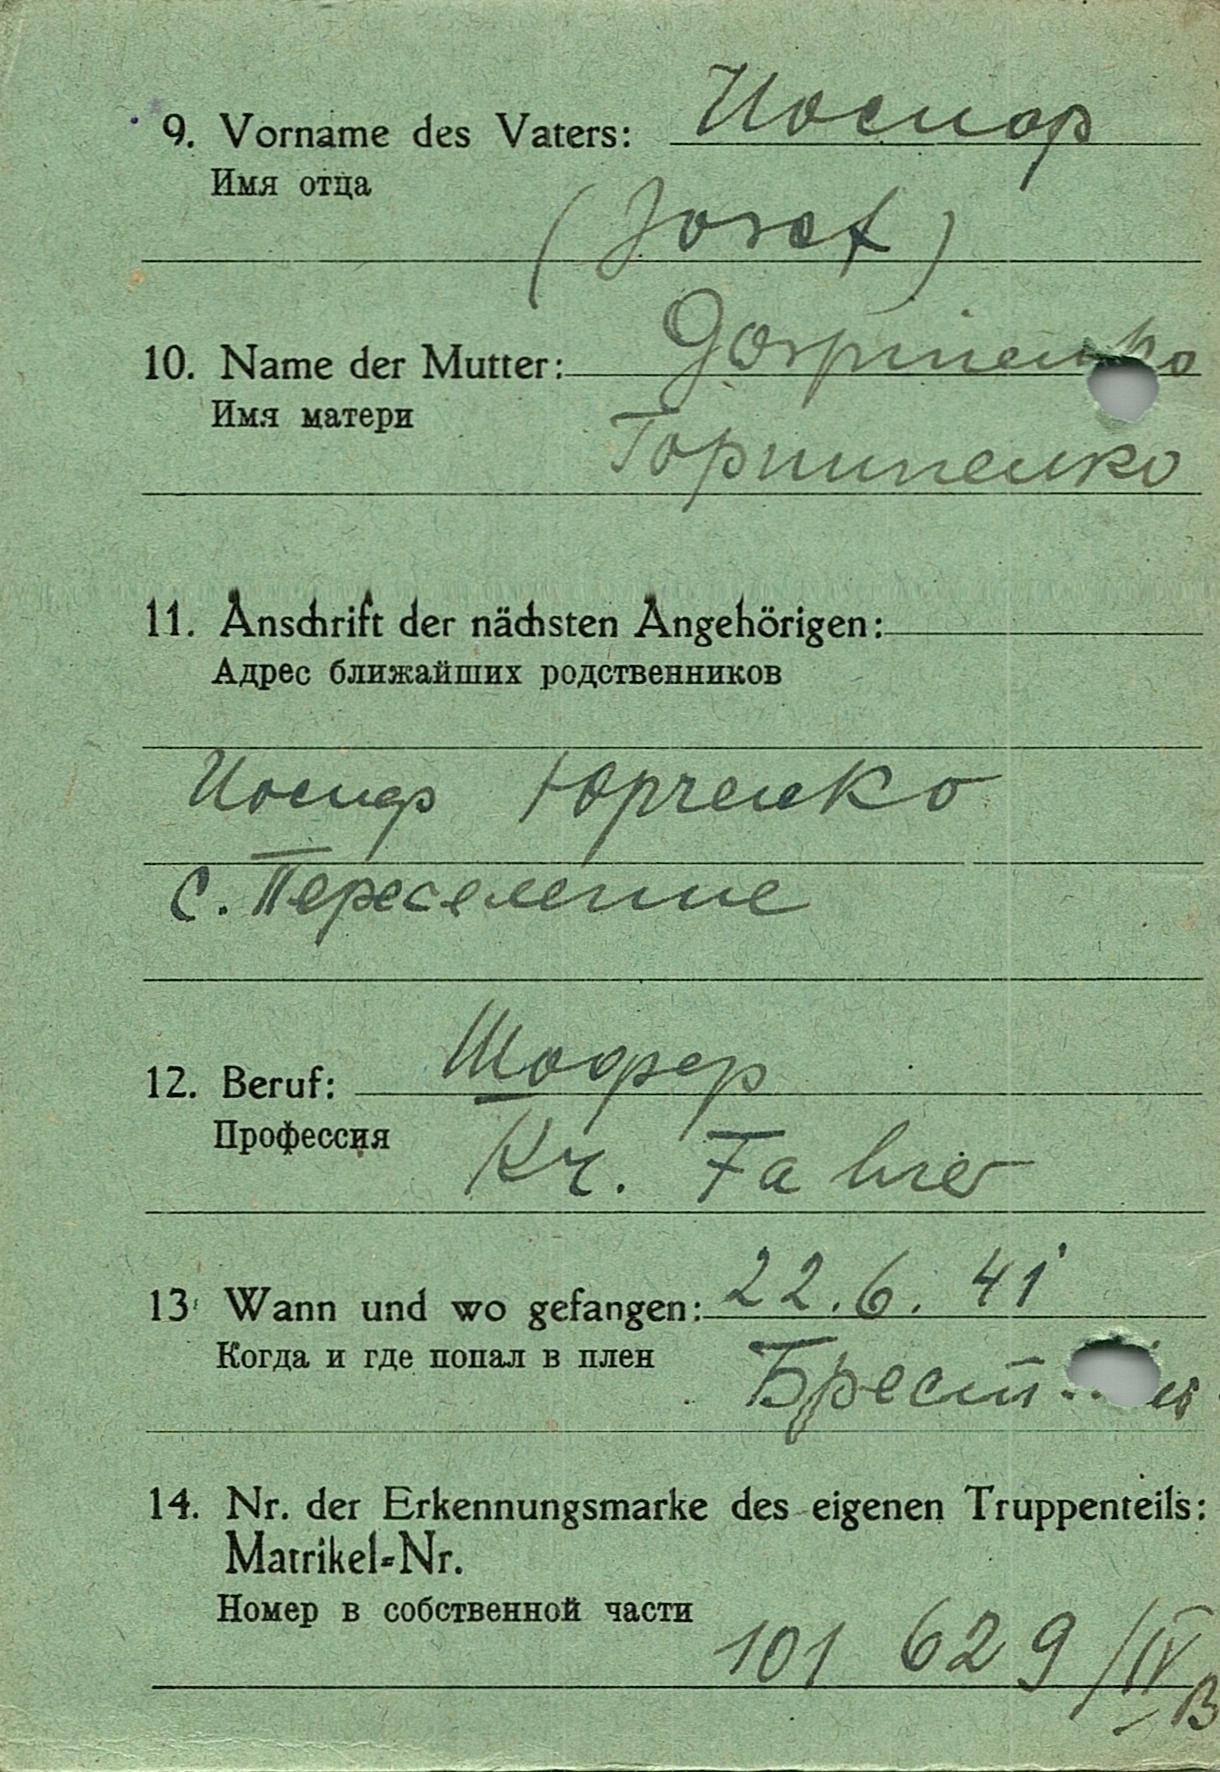 9. Vorname des Vaters: Иосиф
Имя отца
(Josef)
10. Name der Mutter: Gorpinenko
Имя матери
Горпиненко
11. Anschrift der nächsten Angehörigen:
Адрес ближайших родственников
Иосиф Юрченко
с. Переселение
12. Beruf: Шофер
Профессия
Kr. Fahrer
13 Wann und wo gefangen: 22.6.41
Когда и где попал в плен
Брест
14. Nr. der Erkennungsmarke des eigenen Truppenteils:
Matrikel-Nr.
Номер в собственной части
101 629/IV
B